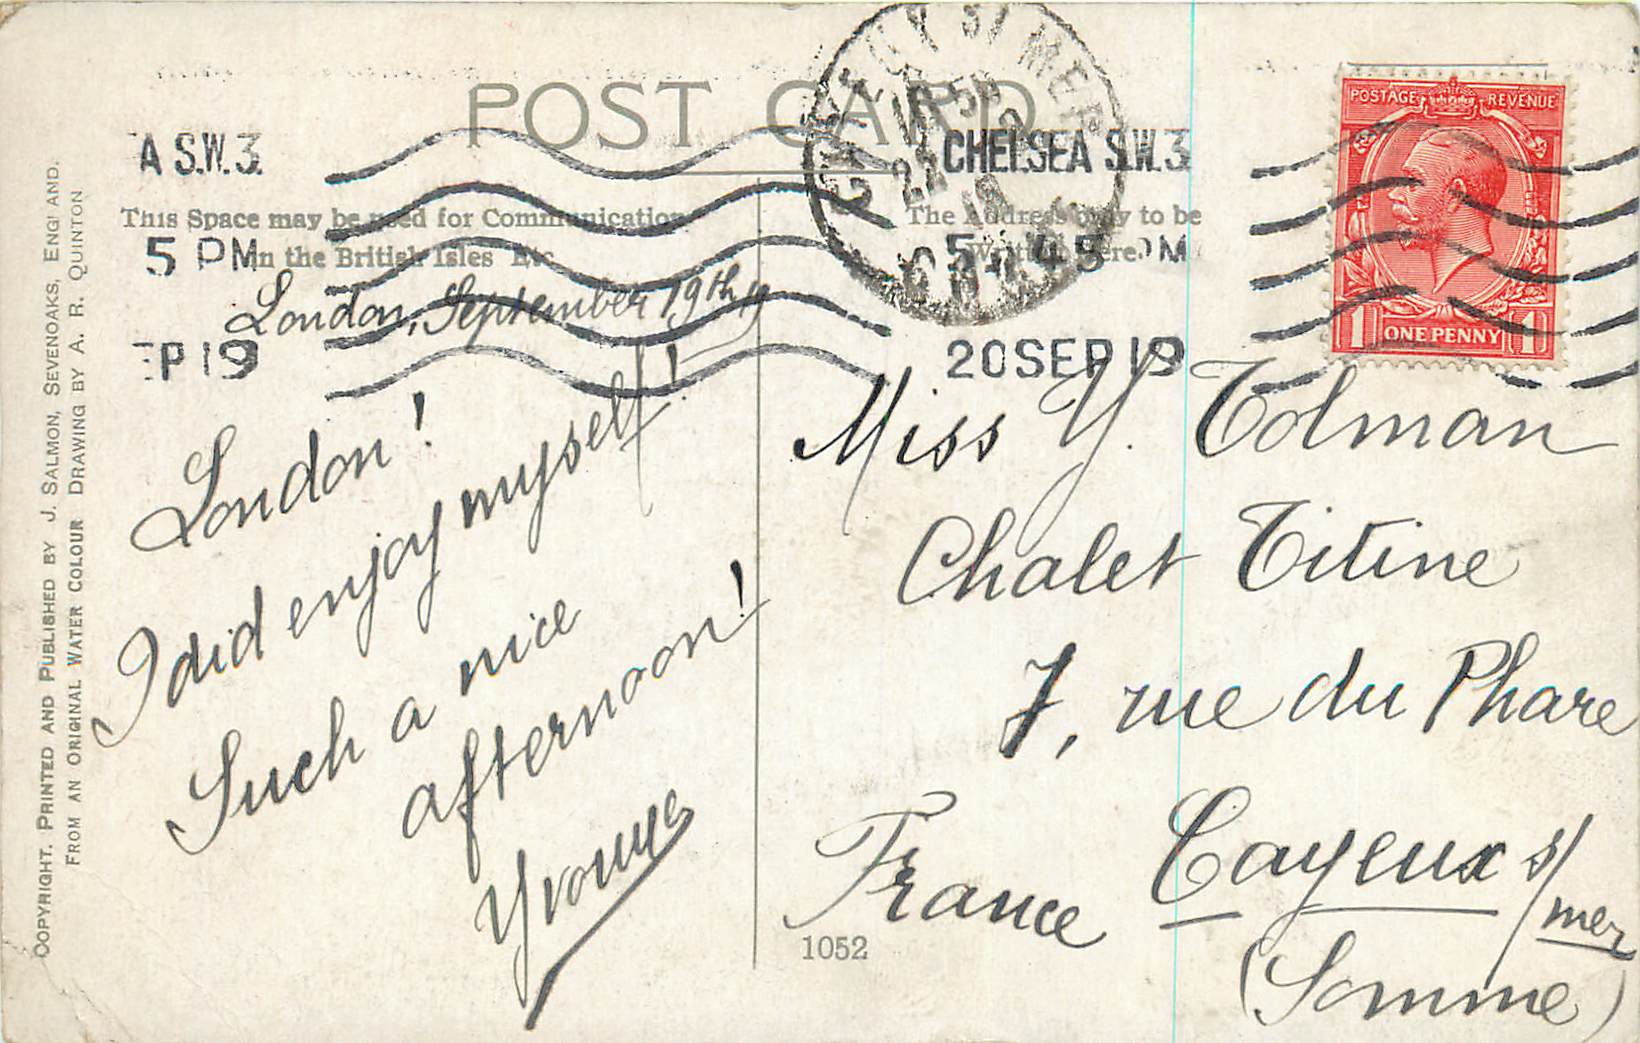 POST CARD
A S.W.3.
5 PM
EP 19
CHELSEA S.W.3
5. 45 PM
20 SEP 19
This Space may be used for Communication
in the British Isles Etc.
The Address only to be
Written Here.
POSTAGE REVENUE
1 ONE PENNY 1
London, September 19th 19
London!
I did enjoy myself!
Such a nice
afternoon!
Yvonne
Miss Y. Tolman
Chalet Titine
7, rue du Phare
Cayeux s/mer
France
(Somme)
1052
COPYRIGHT. PRINTED AND PUBLISHED BY J. SALMON, SEVENOAKS, ENGLAND.
FROM AN ORIGINAL WATER COLOUR DRAWING BY A. R. QUINTON